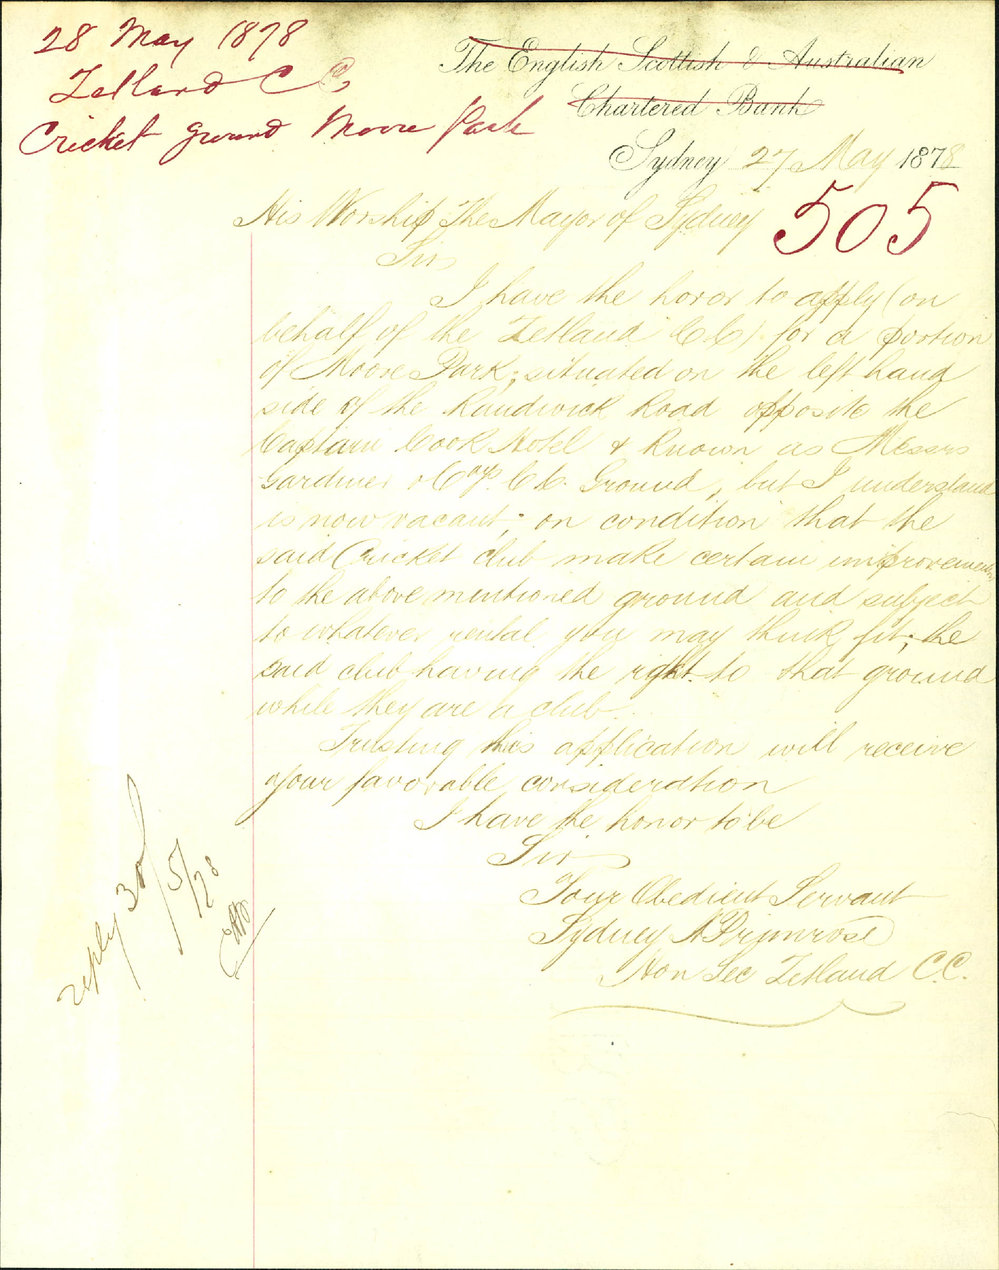 28 May 1878
Zetland C C
Cricket ground Moore Park
The English Scottish & Australian
Chartered Bank
Sydney 27 May 1878
505
His Worship The Mayor of Sydney
Sir
I have the honor to apply (on
behalf of the Zetland C.C.) for a portion
of Moore Park, situated on the left hand
side of the Randwick Road opposite the
Captain Cook Hotel & known as Messrs
Gardiner & Coys. C.C. Ground, but I understand
is now vacant; on condition that the
said Cricket club make certain improvements
to the above mentioned ground and subject
to whatever rental you may think fit; the
said club having the right to that ground
while they are a club.
Trusting this application will receive
your favorable consideration
I have the honor to be
Sir
Your Obedient Servant
Sydney A Primrose
Hon Sec Zetland C.C.
reply 30/5/78